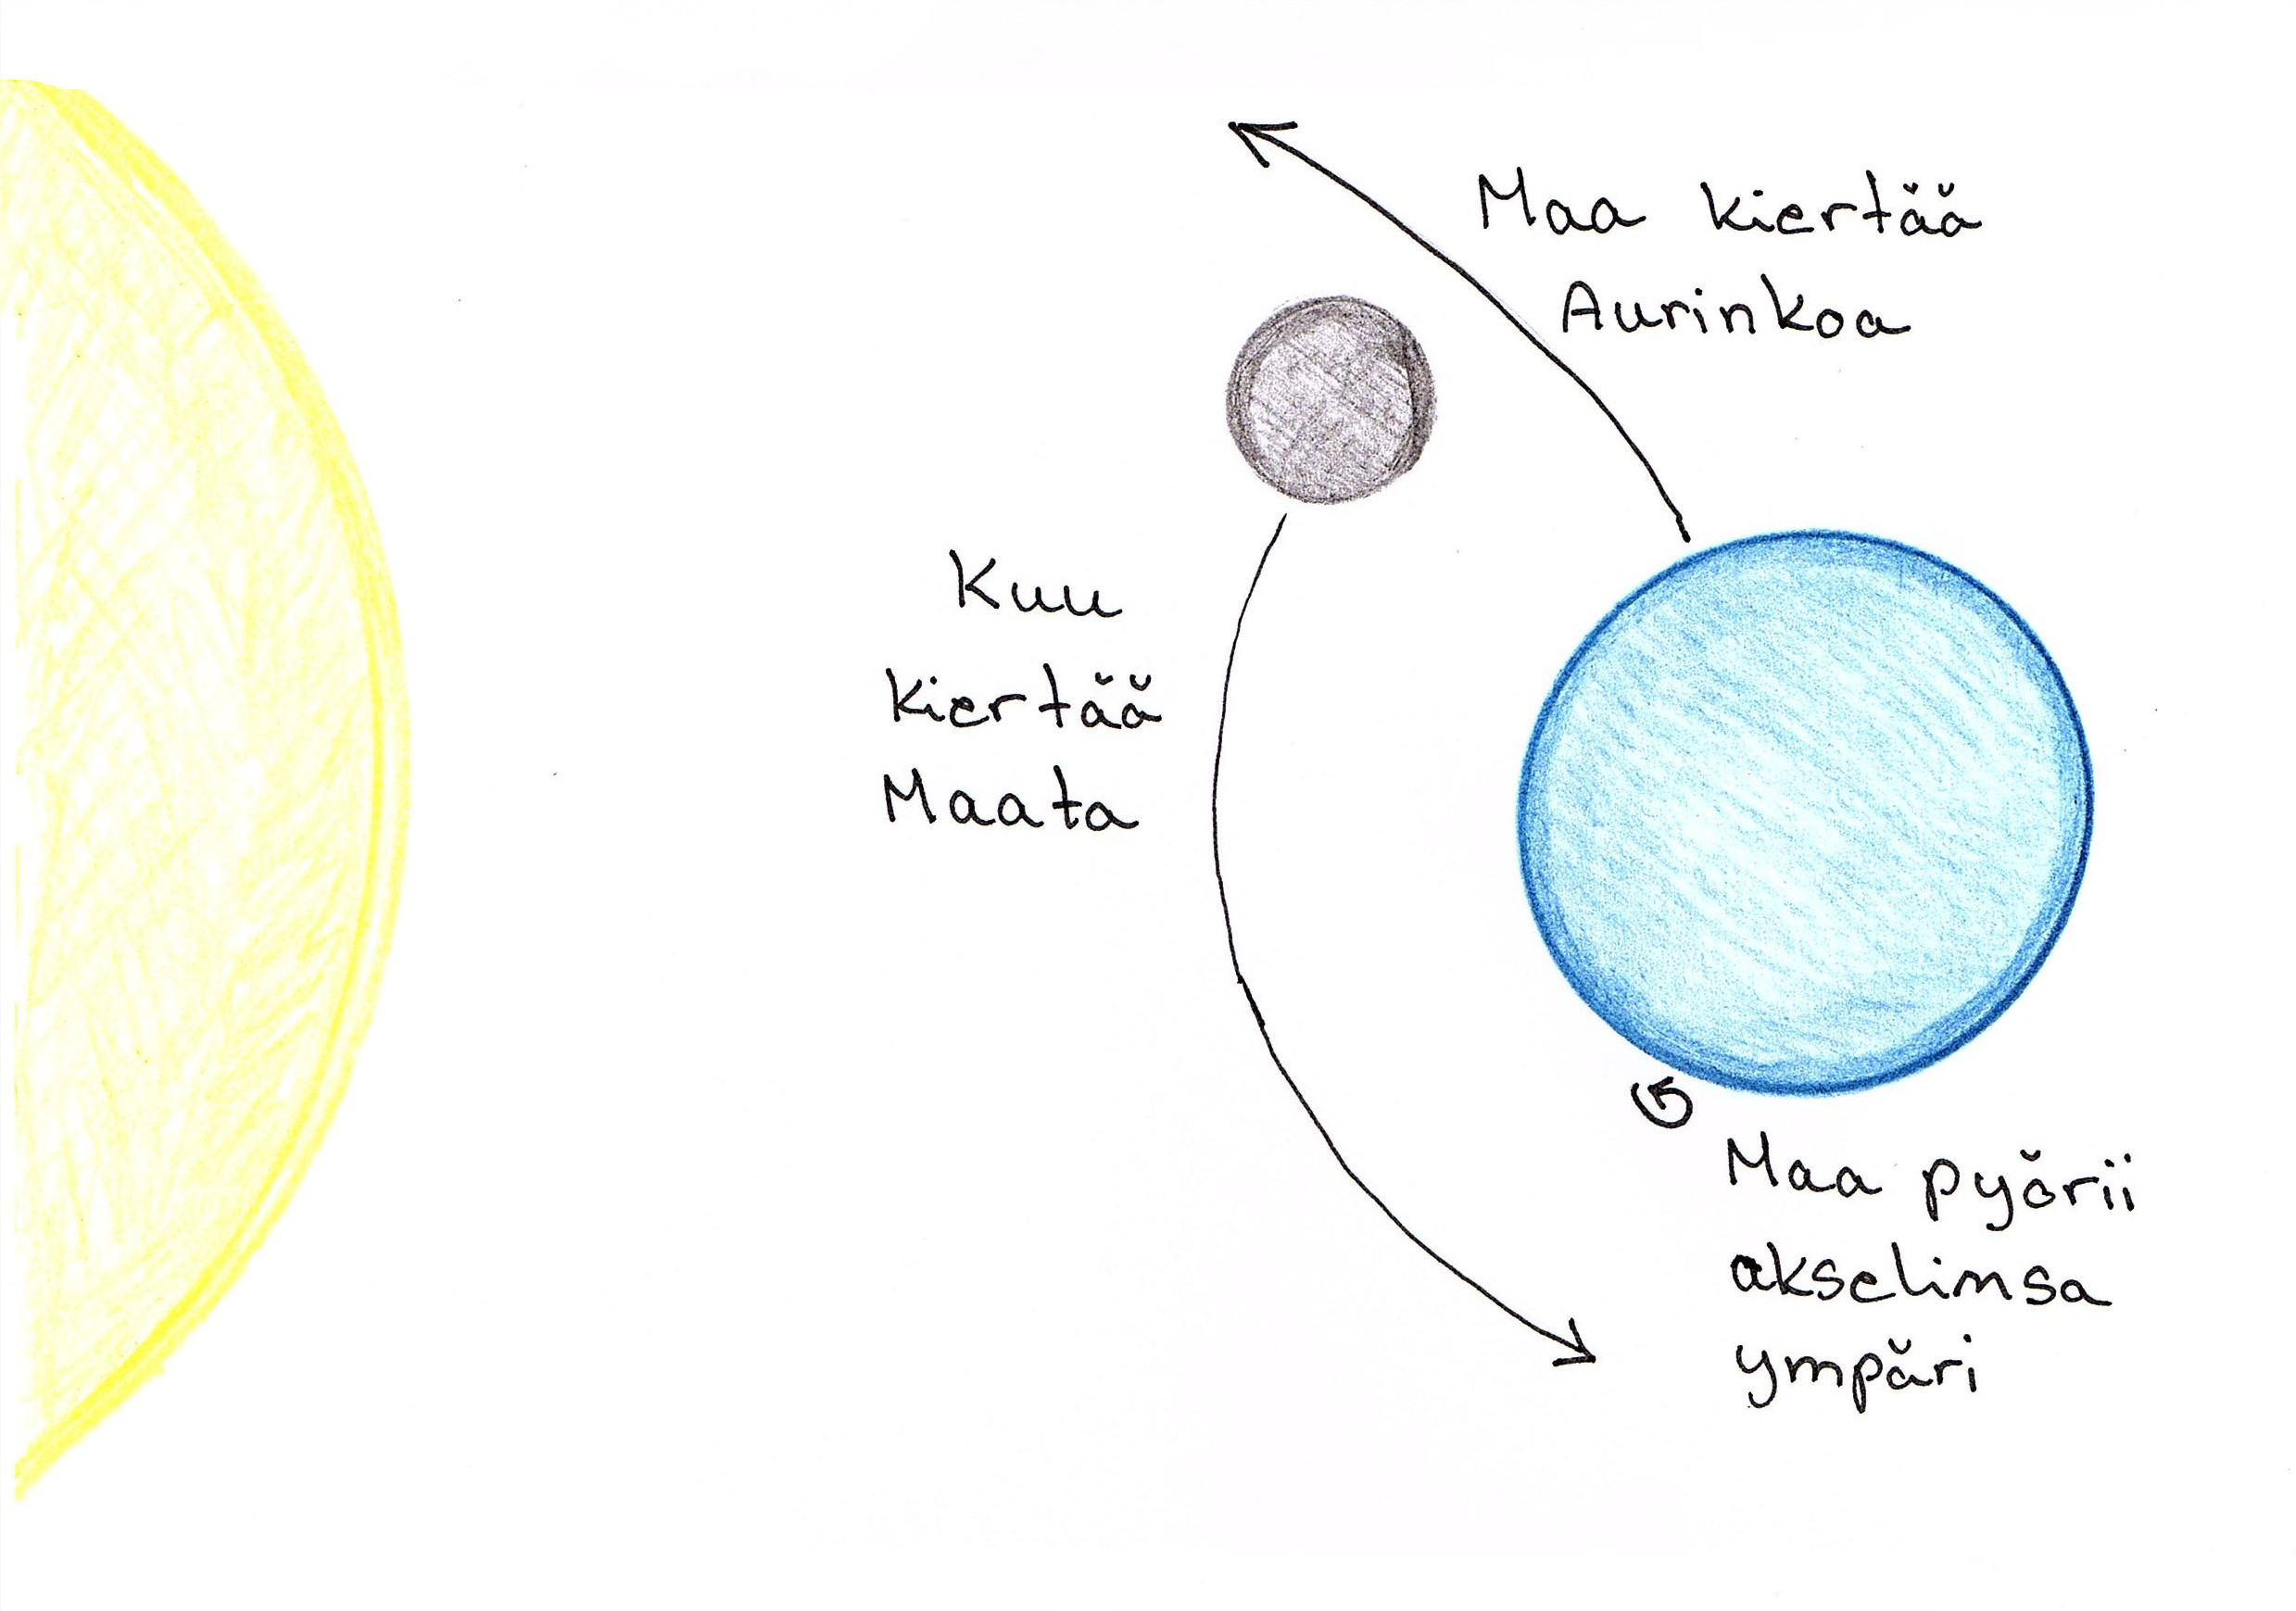 Maa kiertää
Aurinkoa
Kuu
kiertää
Maata
Maa pyörii
akselinsa
ympäri